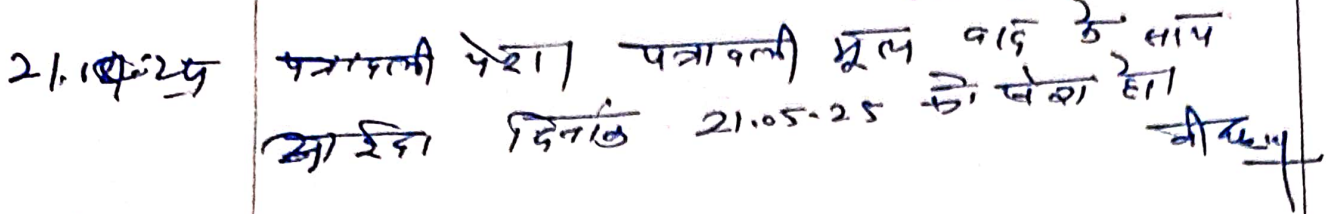 पत्रावली पेश। पत्रावली मूल वाद के साथ
आईंदा दिनांक 21.05.25 को पेश हो।